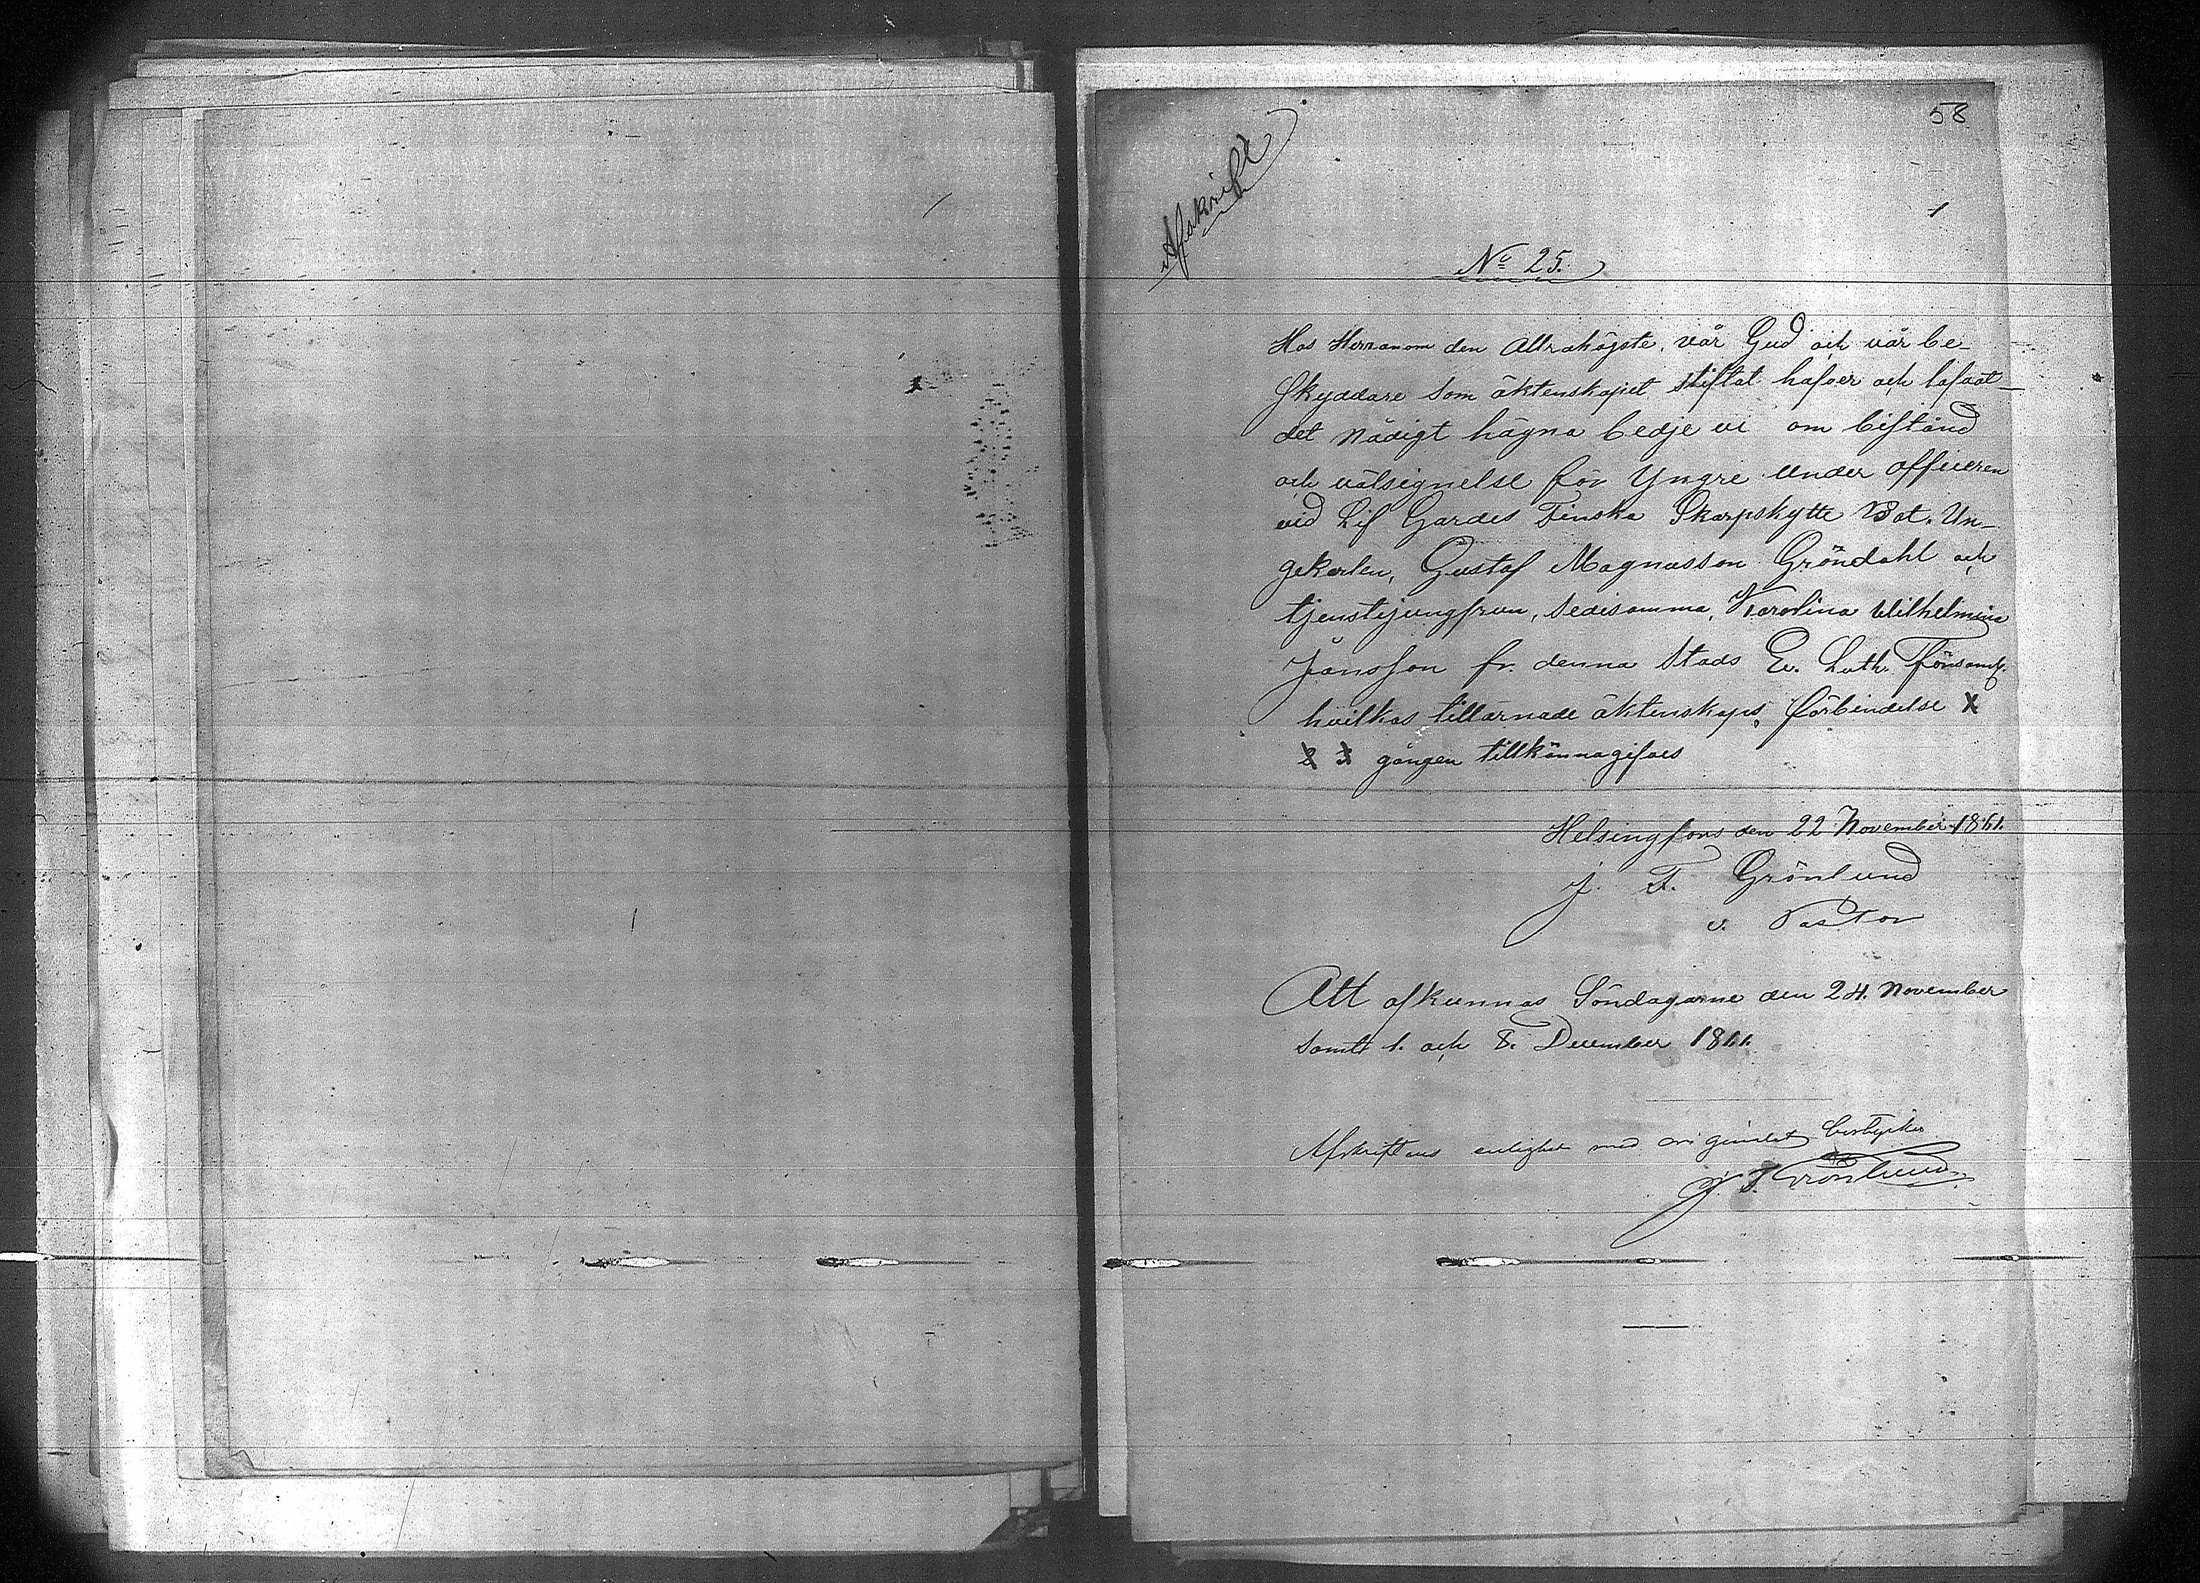 58
Afskrift
1
No 25.
Hos Herranom den Allrahögste, vår Gud och vår be
skyddare som äktenskapet stiftat hafver och lofvat
det nådigt hägna bedje vi om bistånd
och välsignelse för Yngre Under officeren
vid Lif Gardes Finska Skarpskytte Bat. Un-
gekarlen, Gustaf Magnusson Gröndahl och
tjenstejungfrun, dedisamma, Karolina Wilhelmina
Jansson fr. denna Stads Ev. Luth. Församl.
hvilkas tillärnade äktenskaps förbindelse 1
2 3 gången tillkännagifves
Helsingfors den 22 November 1861.
J. F. Grönlund
v. Pastor
Att afkunnas Söndagarne den 24. November
samt 1. och 8. December 1861.
Afskriftens enlighet med originalet bestyrker
J. F. Grönlund